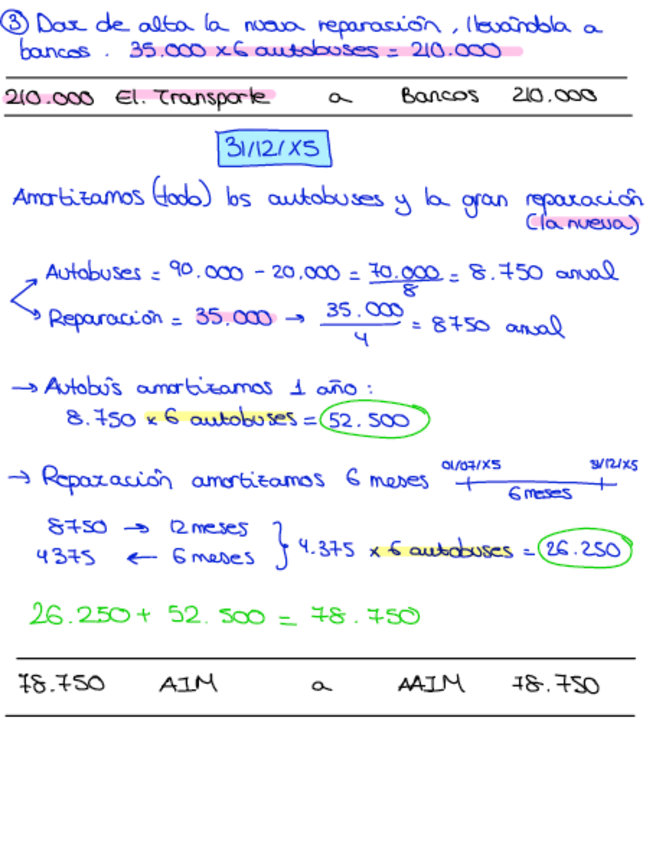 ③ Dar de alta la nueva reparación, llevándola a
bancos. 35.000 x 6 autobuses = 210.000
210.000 El. Transporte a Bancos 210.000
31/12/X5
Amortizamos (todo) los autobuses y la gran reparación
(la nueva)
Autobuses = 90.000 - 20.000 = 70.000/8 = 8.750 anual
Reparación = 35.000 → 35.000/4 = 8750 anual
→ Autobús amortizamos 1 año:
8.750 x 6 autobuses = 52.500
→ Reparación amortizamos 6 meses 01/07/X5 31/12/X5
6 meses
8750 → 12 meses
4375 ← 6 meses } 4.375 x 6 autobuses = 26.250
26.250 + 52.500 = 78.750
78.750 AIM a AAIM 78.750